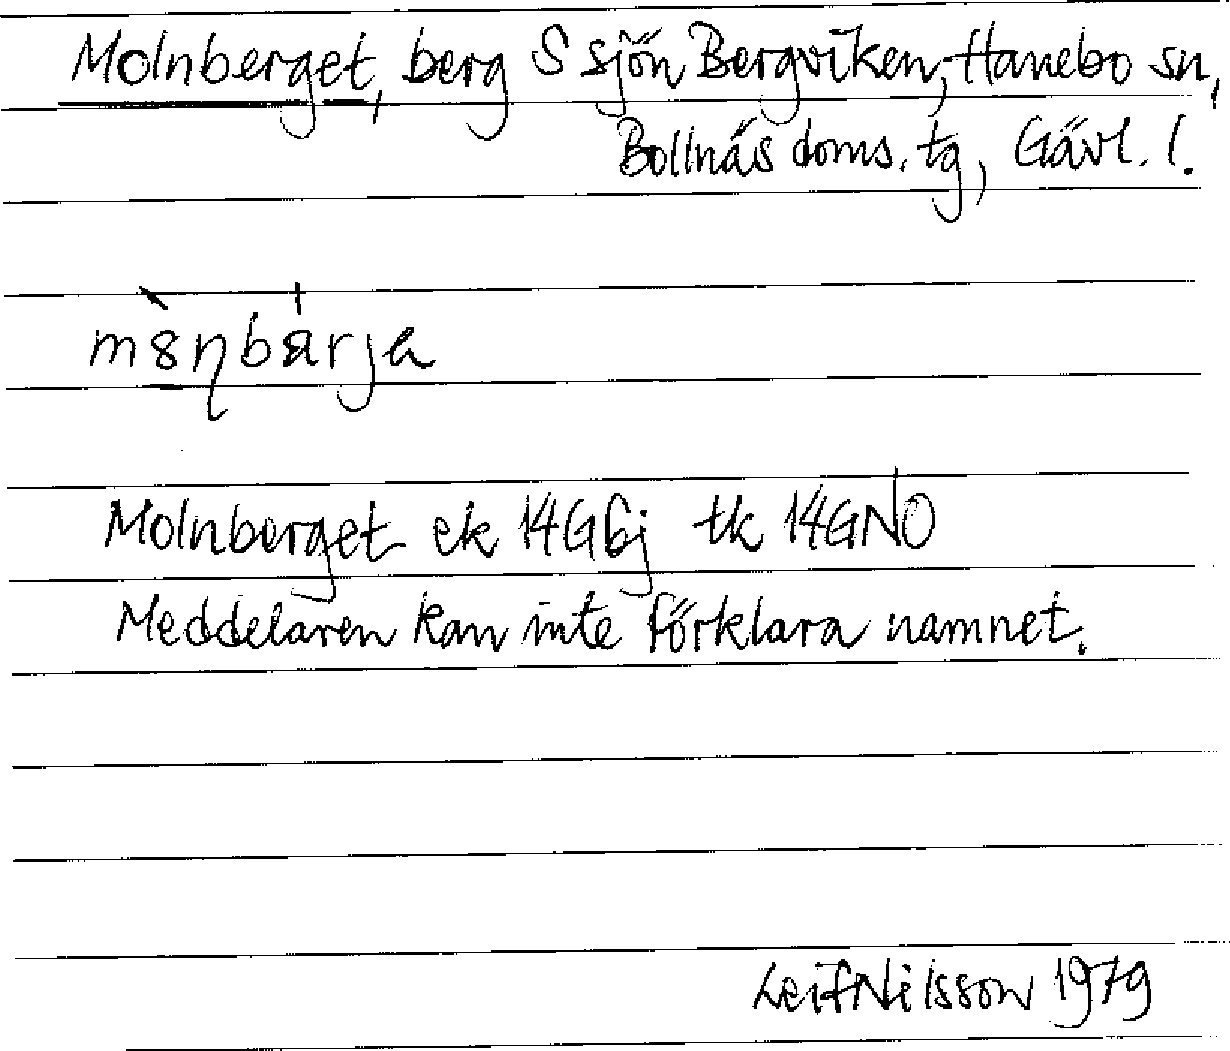 Molnberget, berg S sjön Bergviken, Hanebo sn,
Bollnäs doms. tg, Gävl. l.
Molnberget ek 14G6j tk 14GNO
Meddelaren kan inte förklara namnet.
Leif Nilsson 1979